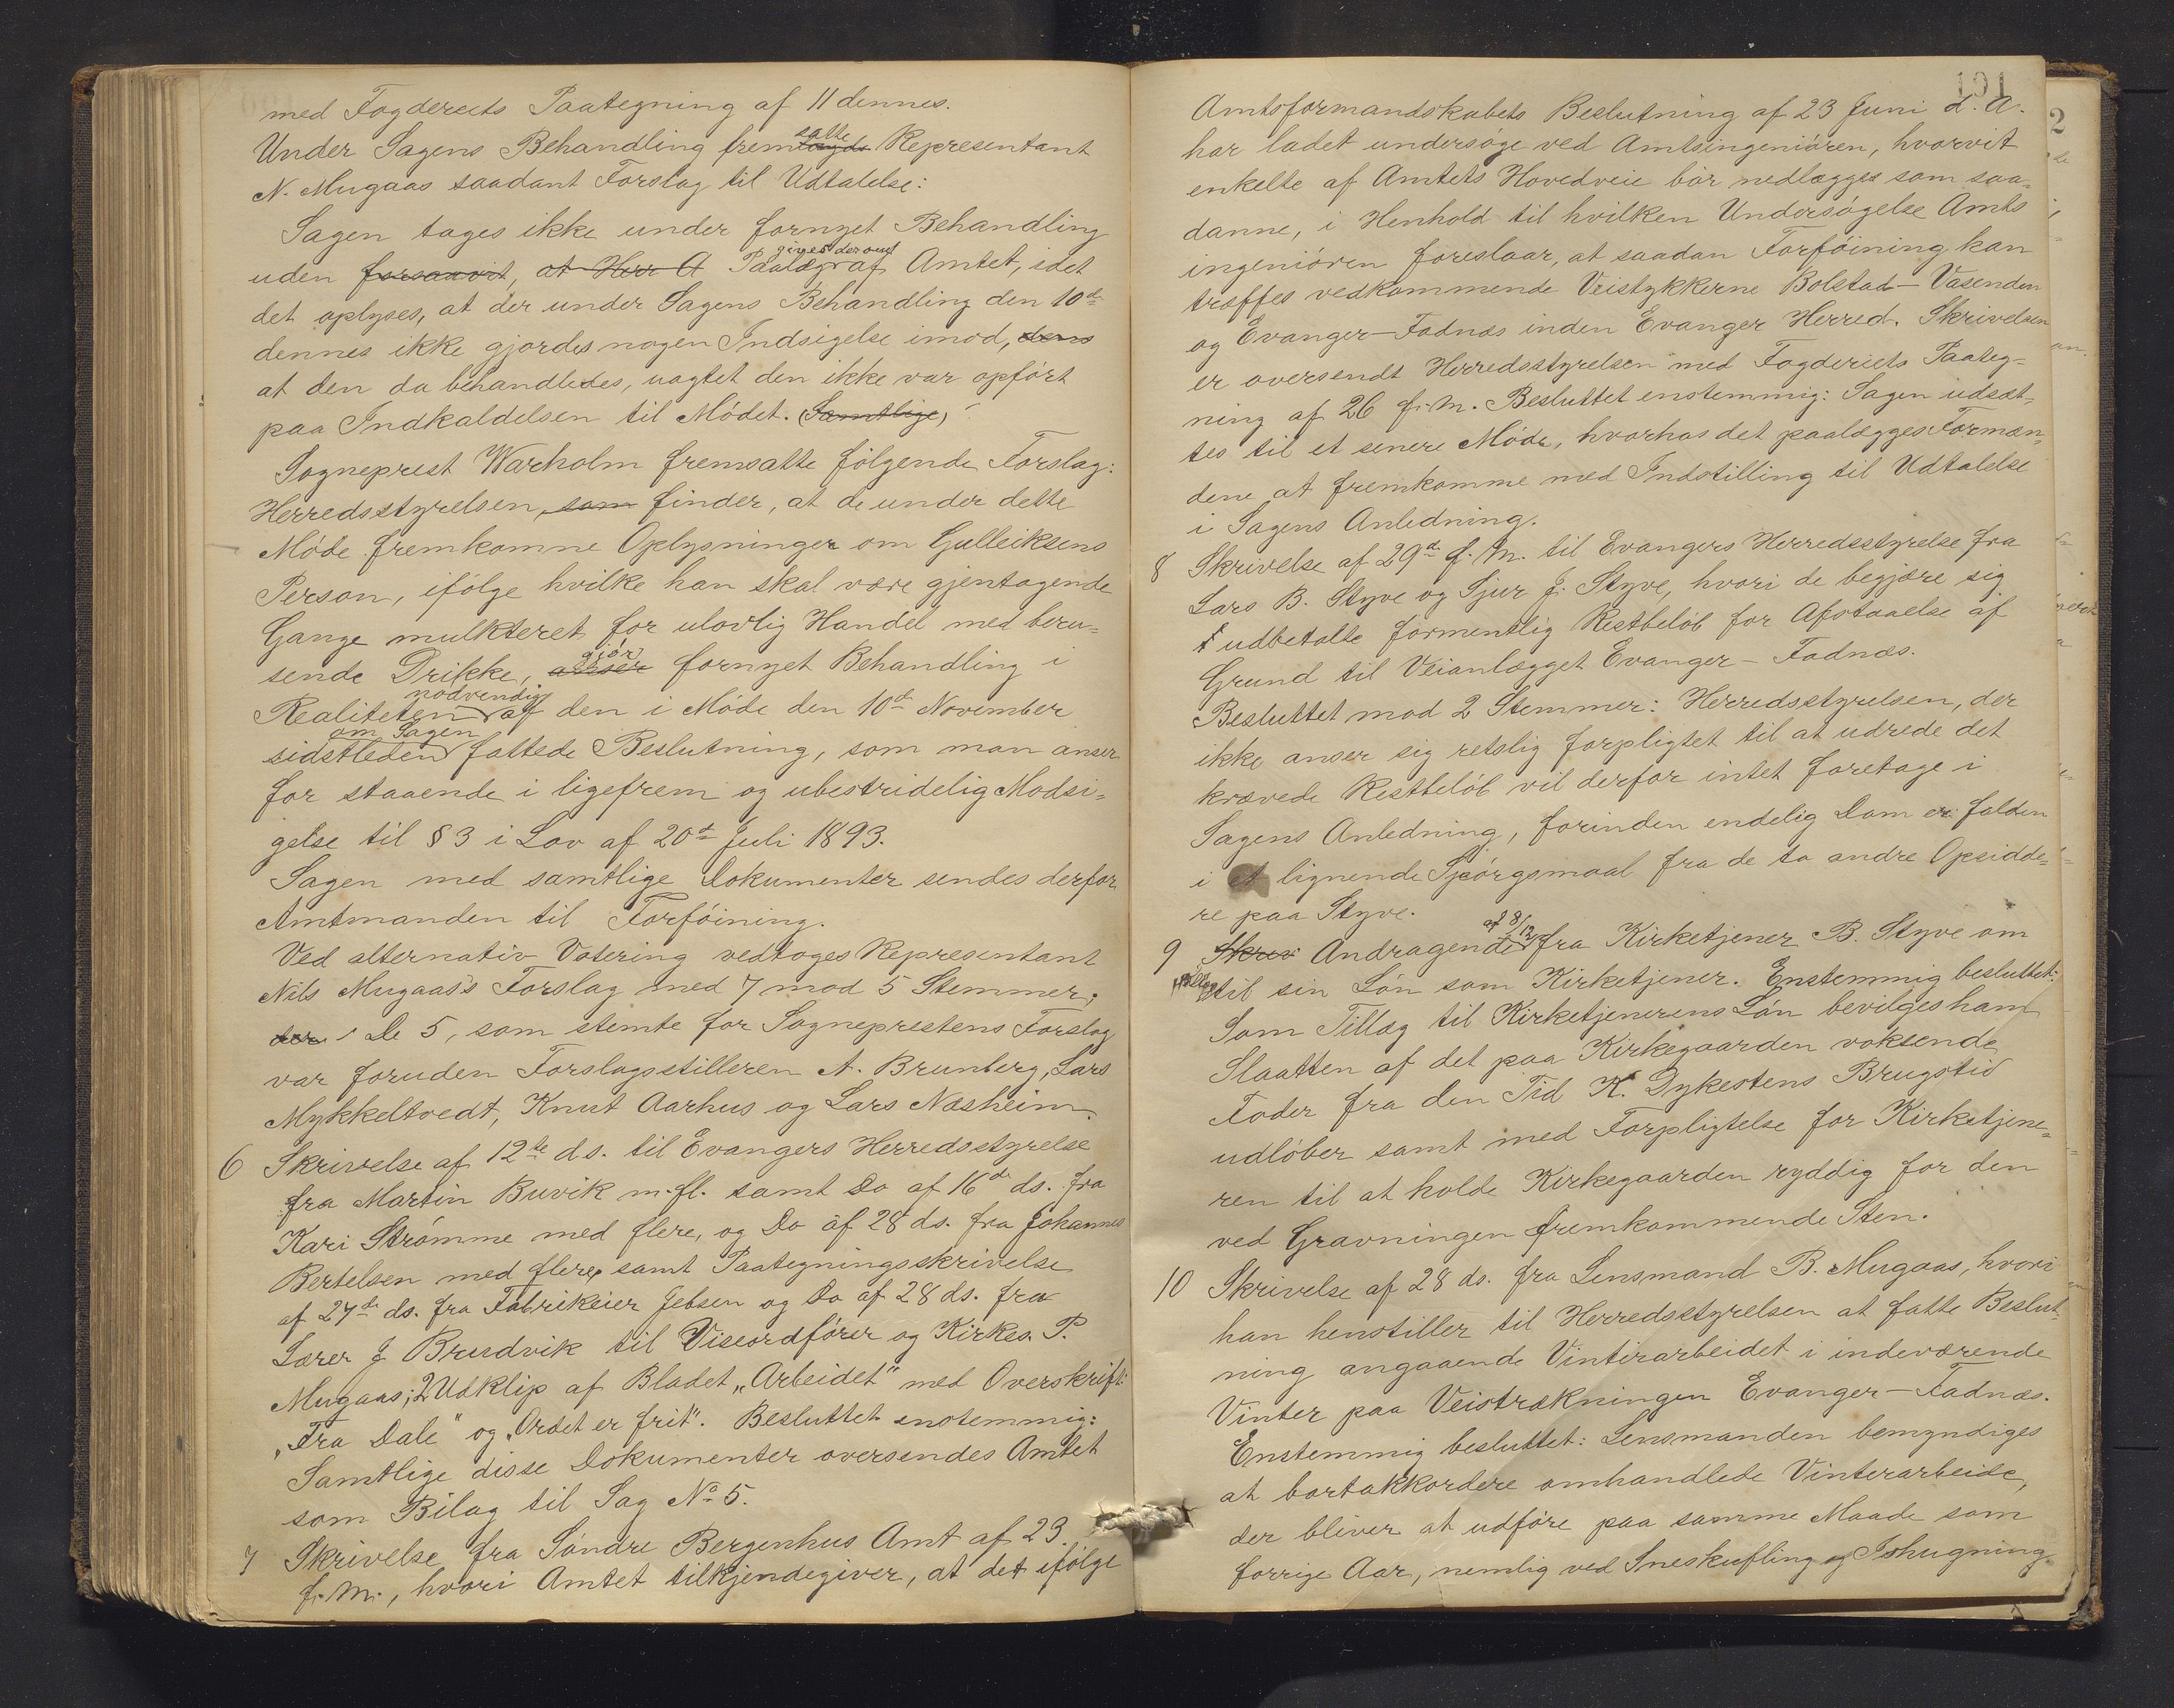 med Fogderiets Paategning af 11 dennes.
Under Sagens Behandling fremsatte Representant
N. Mugaas saadant Forslag til Udtalelse:
Sagen tages ikke under fornyet Behandling
uden forsaavidt, at Herr A Paalæg gives derom af Amtet, idet
det oplyses, at der under Sagens Behandling den 10de
dennes ikke gjordes nogen Indsigelse imod, dens
at den da behandledes, uagtet den ikke var opført
paa Indkaldelsen til Mødet. (Samtlige)
Sogneprest Warholm fremsatte følgende Forslag:
Herredsstyrelsen, som finder, at de under dette
Møde fremkomne Oplysninger om Gulleiksens
Person, ifølge hvilke han skal være gjentagende
Gange mulkteret for ulovlig Handel med beru-
sende Drikke, anser gjør fornyet Behandling i
Realiteten nødvendig af den i Møde den 10de November
sidstleden om Sagen fattede Beslutning, som man anser
for staaende i ligefrem og ubestridelig Modsi-
gelse til § 3 i Lov af 20de Juli 1893.
Sagen med samtlige Dokumenter sendes derfor
Amtmanden til Forføining.
Ved alternativ Votering vedtoges Representant
Nils Mugaas's Forslag med 7 mod 5 Stemmer,
der De 5, som stemte for Sogneprestens Forslag
var foruden Forslagsstilleren A. Brunberg, Lars
Mykkeltvedt, Knut Aarhus og Lars Næsheim.
6 Skrivelse af 12te ds. til Evangers Herredsstyrelse
fra Martin Buvik m.fl. samt Do af 16de ds. fra
Kari Strømme med flere, og Do af 28 ds. fra Johannes
Bertelsen med flere, samt Paategningsskrivelse
af 27de ds. fra Fabrikeier Jebsen og Do af 28 ds. fra
Lærer J Brudvik til Viseordfører og Kirkes. P.
Mugaas; 2 Udklip af Bladet "Arbeidet" med Overskrift:
"Fra Dale" og "Ordet er frit". Besluttet enstemmig:
Samtlige disse Dokumenter oversendes Amtet
som Bilag til Sag No 5.
7 Skrivelse fra Søndre Bergenhus Amt af 23.
f.M., hvori Amtet tilkjendegiver, at det ifølge
191
Amtsformandskabets Beslutning af 23 Juni d. A.
har ladet undersøge ved Amtsingeniøren, hvorvit
enkelte af Amtets Hovedveie bør nedlægges som saa-
danne, i Henhold til hvilken Undersøgelse Amts
ingeniøren foreslaar, at saadan Forføining kan
træffes vedkommende Veistykkerne Bolstad - Vasenden
og Evanger-Fadnæs inden Evanger Herred. Skrivelsen
er oversendt Herredsstyrelsen med Fogderiets Paateg-
ning af 26 f.M. Besluttet enstemmig: Sagen udsæt-
tes til et senere Møde, hvorhos det paalægges Formæn-
dene at fremkomme med Indstilling til Udtalelse
i Sagens Anledning.
8 Skrivelse af 29de f.M. til Evangers Herredsstyrelse fra
Lars B. Styve og Sjur J. Styve, hvori de begjære sig
udbetalte formentlig Restbeløb for Afstaaelse af
Grund til Veianlægget Evanger - Fadnæs.
Besluttet mod 2 Stemmer: Herredsstyrelsen, der
ikke anser sig retslig forpligtet til at udrede det
krævede Restbeløb vil derfor intet foretage i
Sagens Anledning, forinden endelig Dom er falden
i et lignende Spørgsmaal fra de to andre Opsidde-
re paa Styve.
9 Skriv Andragende af 8/12 fra Kirketjener B. Styve om
Tillæg til sin Løn som Kirketjener. Enstemmig besluttet:
Som Tillæg til Kirketjenerens Løn bevilges ham
Slaatten af det paa Kirkegaarden voksende
Foder fra den Tid K. Dykestens Brugstid
udløber samt med Forpligtelse for Kirketjene-
ren til at holde Kirkegaarden ryddig for den
ved Gravningen fremkommende Sten.
10 Skrivelse af 28 ds. fra Lensmand B. Mugaas, hvori
han henstiller til Herredsstyrelsen at fatte Beslut-
ning angaaende Vinterarbeidet i indeværende
Vinter paa Veistrækningen Evanger - Fadnæs.
Enstemmig besluttet: Lensmanden bemyndiges
at bortakkordere omhandlede Vinterarbeide,
der bliver at udføre paa samme Maade som
forrige Aar, nemlig ved Sneskufling og Ishugning